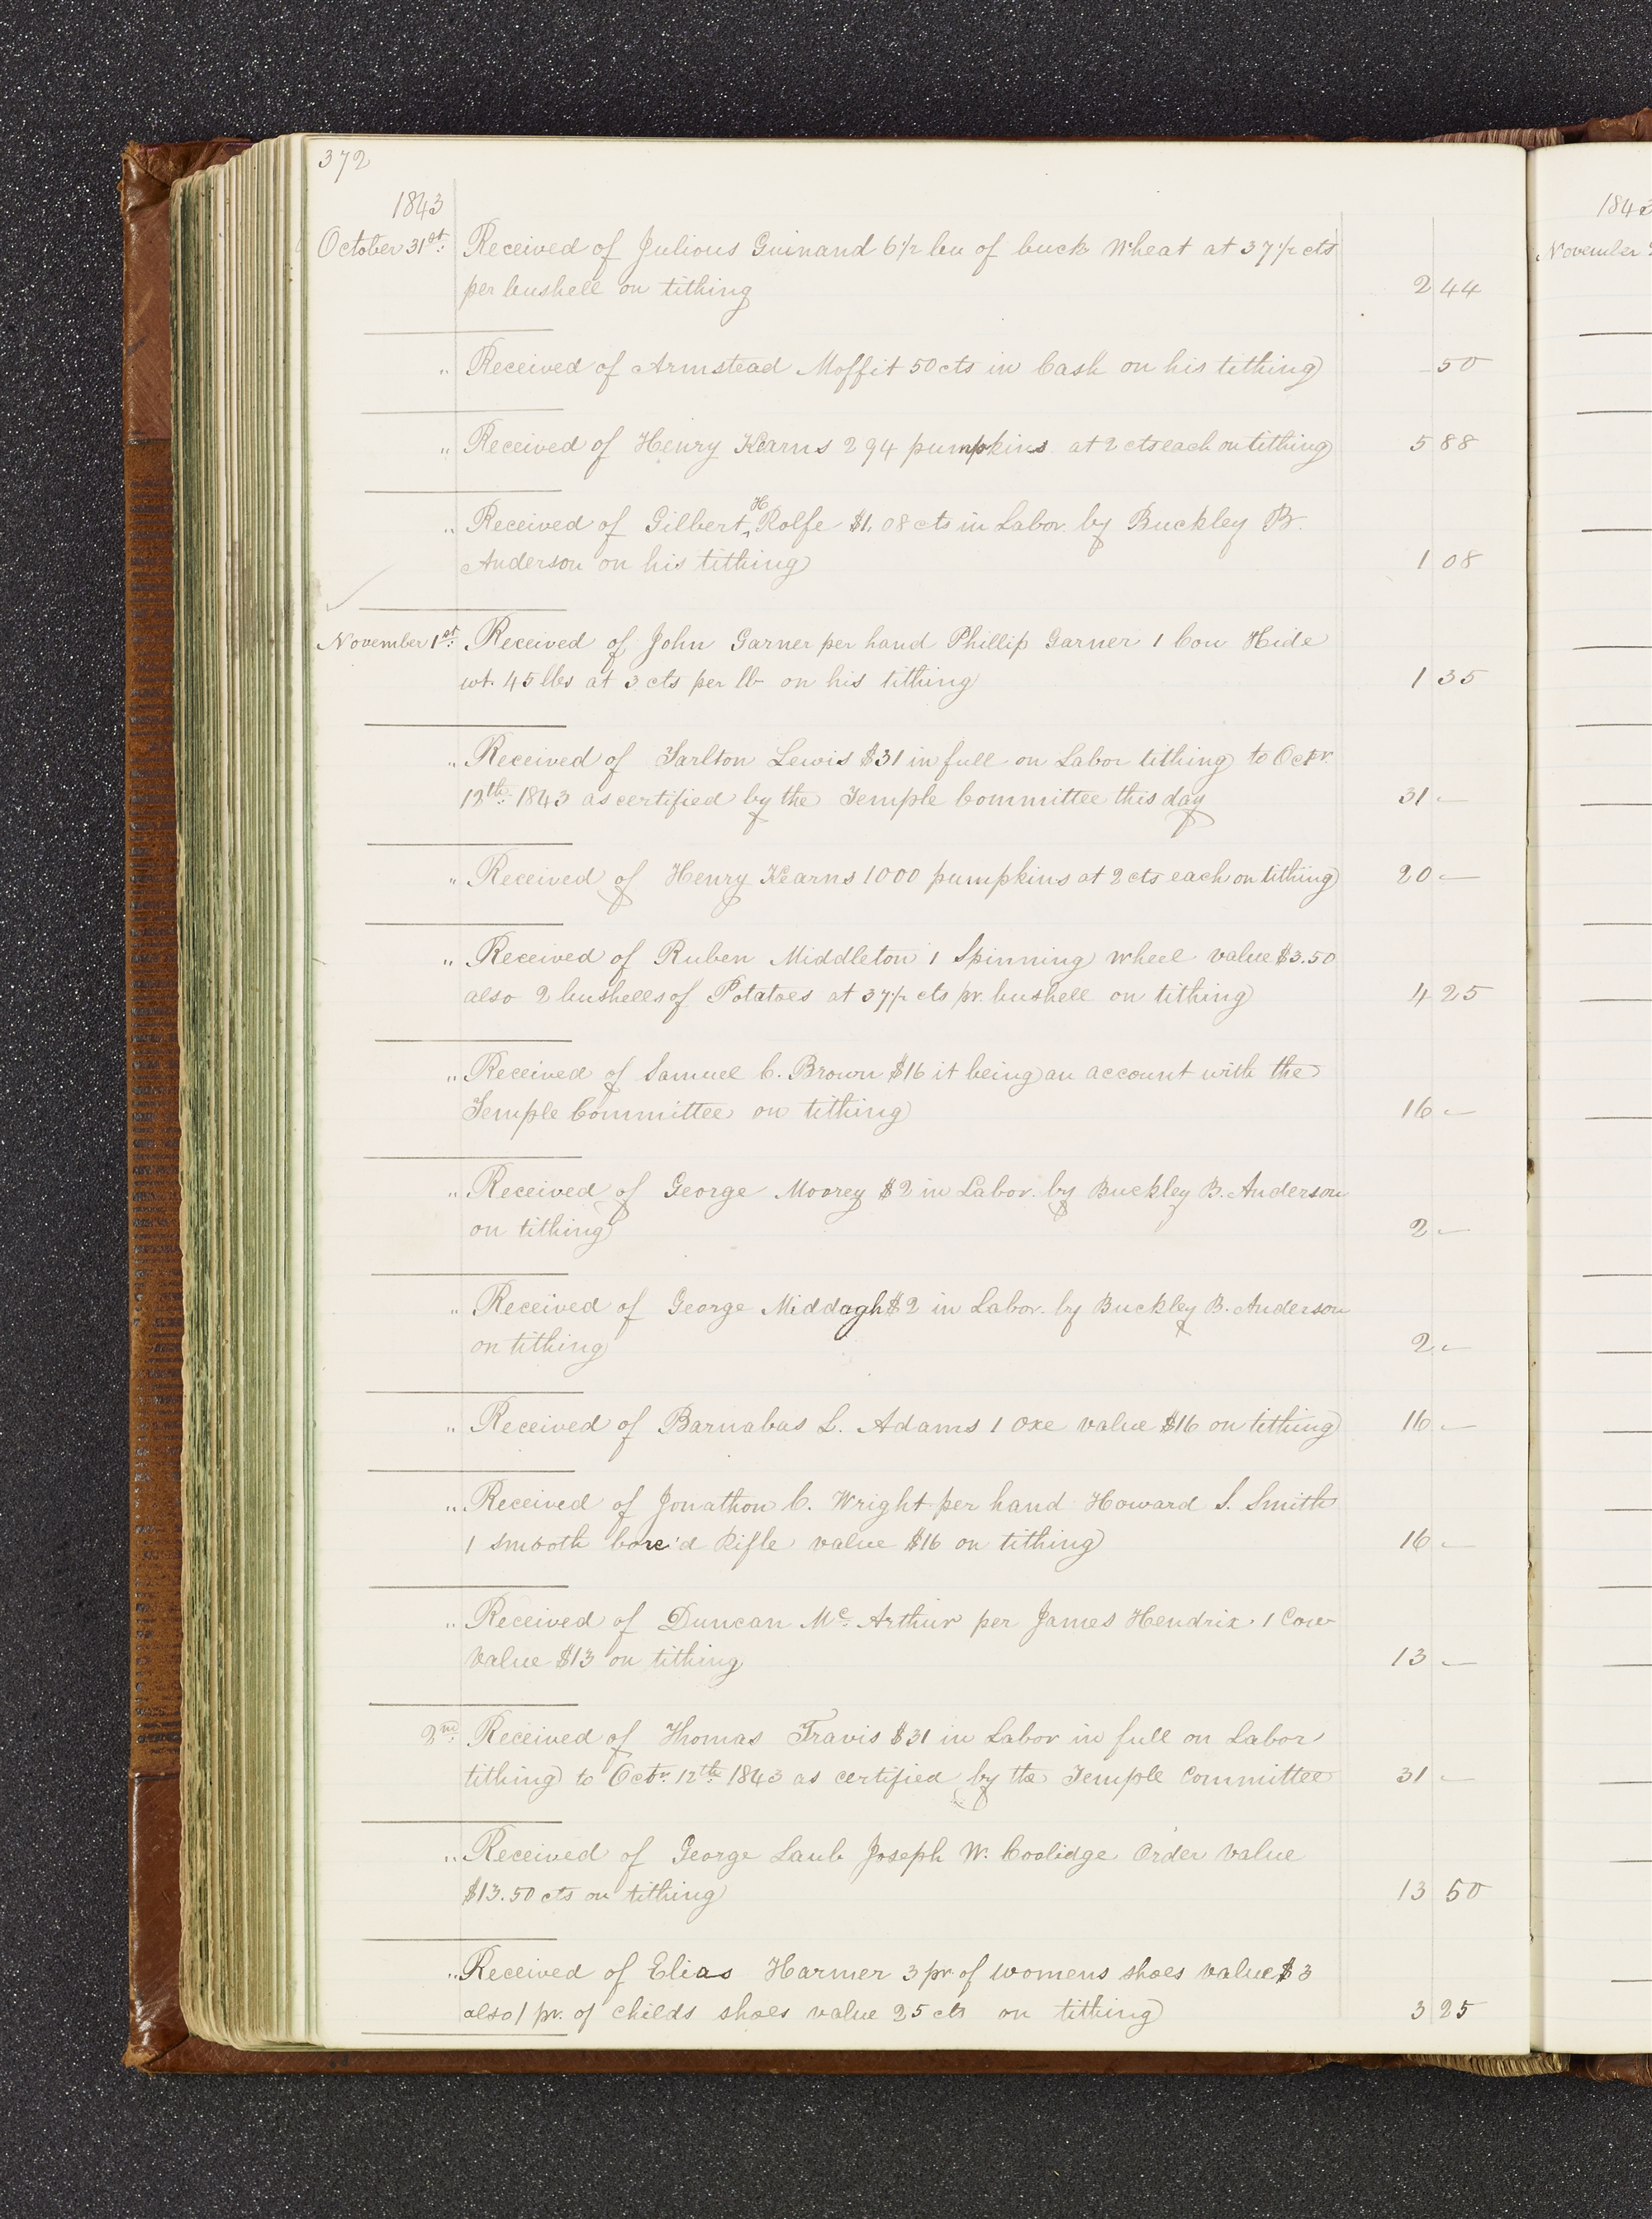 372
1843
October 31st: Received of Julious Guinand 6 1/2 bu of buck Wheat at 37 1/2 cts
per bushell on tithing 2 44
" Received of Armstead Moffit 50 cts in Cash on his tithing 50
" Received of Henry Kearns 294 pumpkins at 2 cts each on tithing 5 88
" Received of Gilbert ^H Rolfe $1,08 cts in Labor by Buckley B.
Anderson on his tithing 1 08
November 1st: Received of John Garner per hand Phillip Garner 1 Cow Hide
wt. 45 lbs at 3 cts per lb on his tithing 1 35
" Received of Tarlton Lewis $31 in full on Labor tithing to Octr.
12th: 1843 as certified by the Temple Committee this day 31 —
" Received of Henry Kearns 1000 pumpkins at 2 cts each on tithing 20 —
" Received of Ruben Middleton 1 Spinning wheel value $3.50
also 2 bushells of Potatoes at 37 1/2 cts pr. bushell on tithing 4 25
" Received of Samuel C. Brown $16 it being an account with the
Temple Committee on tithing 16 —
" Received of George Moorey $2 in Labor by Buckley B. Anderson
on tithing 2 —
" Received of George Middagh $2 in Labor by Buckley B. Anderson
on tithing 2 —
" Received of Barnabas L. Adams 1 Oxe value $16 on tithing 16 —
" Received of Jonathon C. Wright per hand Howard S. Smith
1 smooth bore'd Rifle value $16 on tithing 16 —
" Received of Duncan Mc. Arthur per James Hendrix 1 Cow
value $13 on tithing 13 —
2nd: Received of Thomas Travis $31 in Labor in full on Labor
tithing to Octr. 12th: 1843 as certified by the Temple Committee 31 —
" Received of George Laub Joseph W. Coolidge Order value
$13.50 cts on tithing 13 50
" Received of Elias Harmer 3 pr. of womens shoes value $3
also 1 pr. of childs shoes value 25 cts on tithing 3 25
184
November